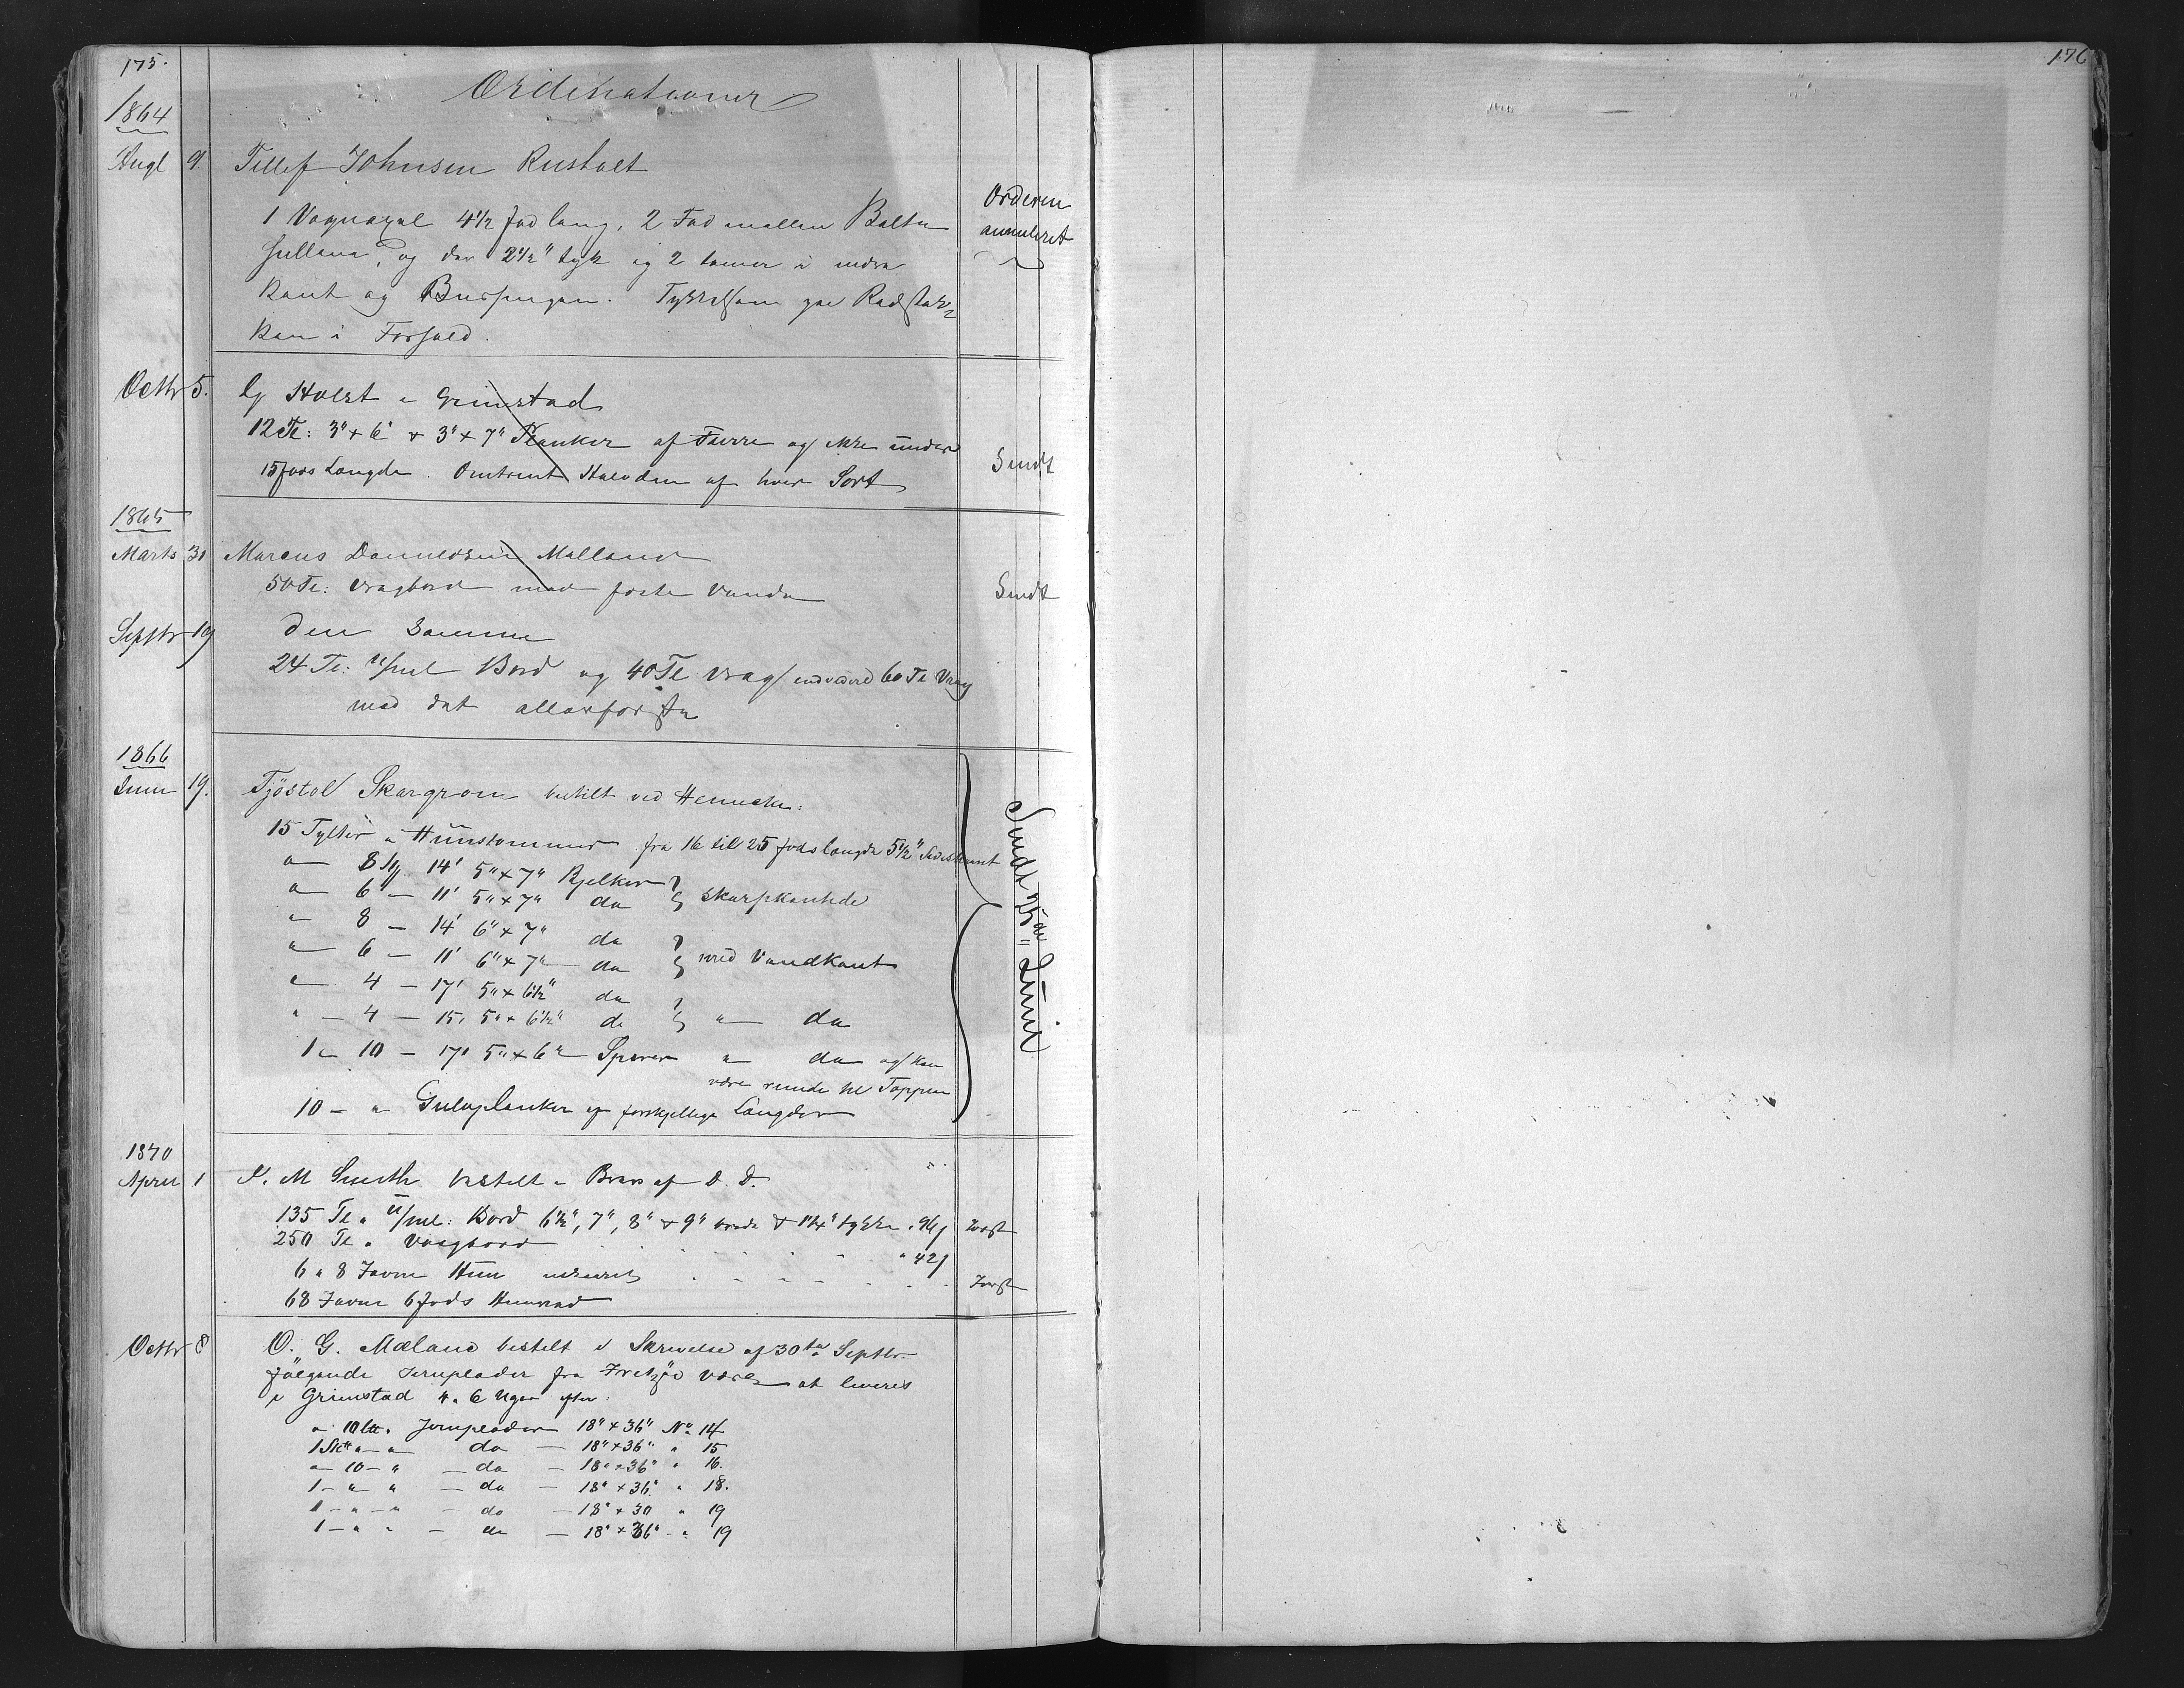 175.
Ordinationer
1864
Augt 9. Tellef Johnsen Rustvet
1 Vognaxel 4 1/2 fod lang, 2 Fod mellem Bolte
hullerne, og den 2 1/2" tyk og 2 tommer i
Kant og Tykkelsen
Kan i Forhold.
Orderen
annuleret
Octbr 5. Holst i Grimstad
12 Tl: 3"+6" + 3"+7" Planker af Furre og ikke under
15 fods Længde. Omtrent Halvden af hver Sort
Sendt
1865
Marts 30 Marcus Danuelsen Molland
50 Tl: Vragbord med første Vande
Sendt
Septbr 19 Den Samme
24 Tl: U/ml Bord og 40 Tl Vrag 60 Tl Vrag
med det allerførste
1866
Juni 19. Tjöstol Skargrom bestilt ved Henneche:
15 Tylter " Huustommer fra 16 til 25 fods længde 5 1/2"
" 8 Ty 14' 5"+7" Bjelker
" 6 — 11' 5"+7" do skarpkantede
" 8 — 14' 6"+7" do
" 6 — 11' 6"+7" do med Vandkant
" 4 — 17' 5"+6 1/2" do
" 4 — 15' 5"+6 1/2" do " do
1 " 10 — 17' 5"+6" Sperrer " do og kan
være runde til Toppen
10 — " Gulvplanker af forskjellige Længder
Sendt 25de Juni
1870
April 1 P. M Smith bestilt i Brev af D. D.
135 Tl " U/ml: Bord 6 1/2", 7", 8" + 9" brede + 1 1/4" tykke " 96
250 Tl " Vragbord " 42
6 " 8 Favne Hun
68 Favne 6 fods Hunved
Octbr 8 O. G. Mæland bestilt i Skrivelse af 30te Septbr.
følgende Jernplader fra Fritzöe Værk at leveres
i Grimstad 4 " 6 Uger efter:
" 10 " Jernplader 18"+36" No 14
1 " " do — 18"+36" " 15
" 10 — " — do — 18"+36" " 16.
1 — " " — do — 18"+36" " 18.
1 — " — " — do — 18"+30 " 19
1 — " " — do — 18"+36" — " 19
176